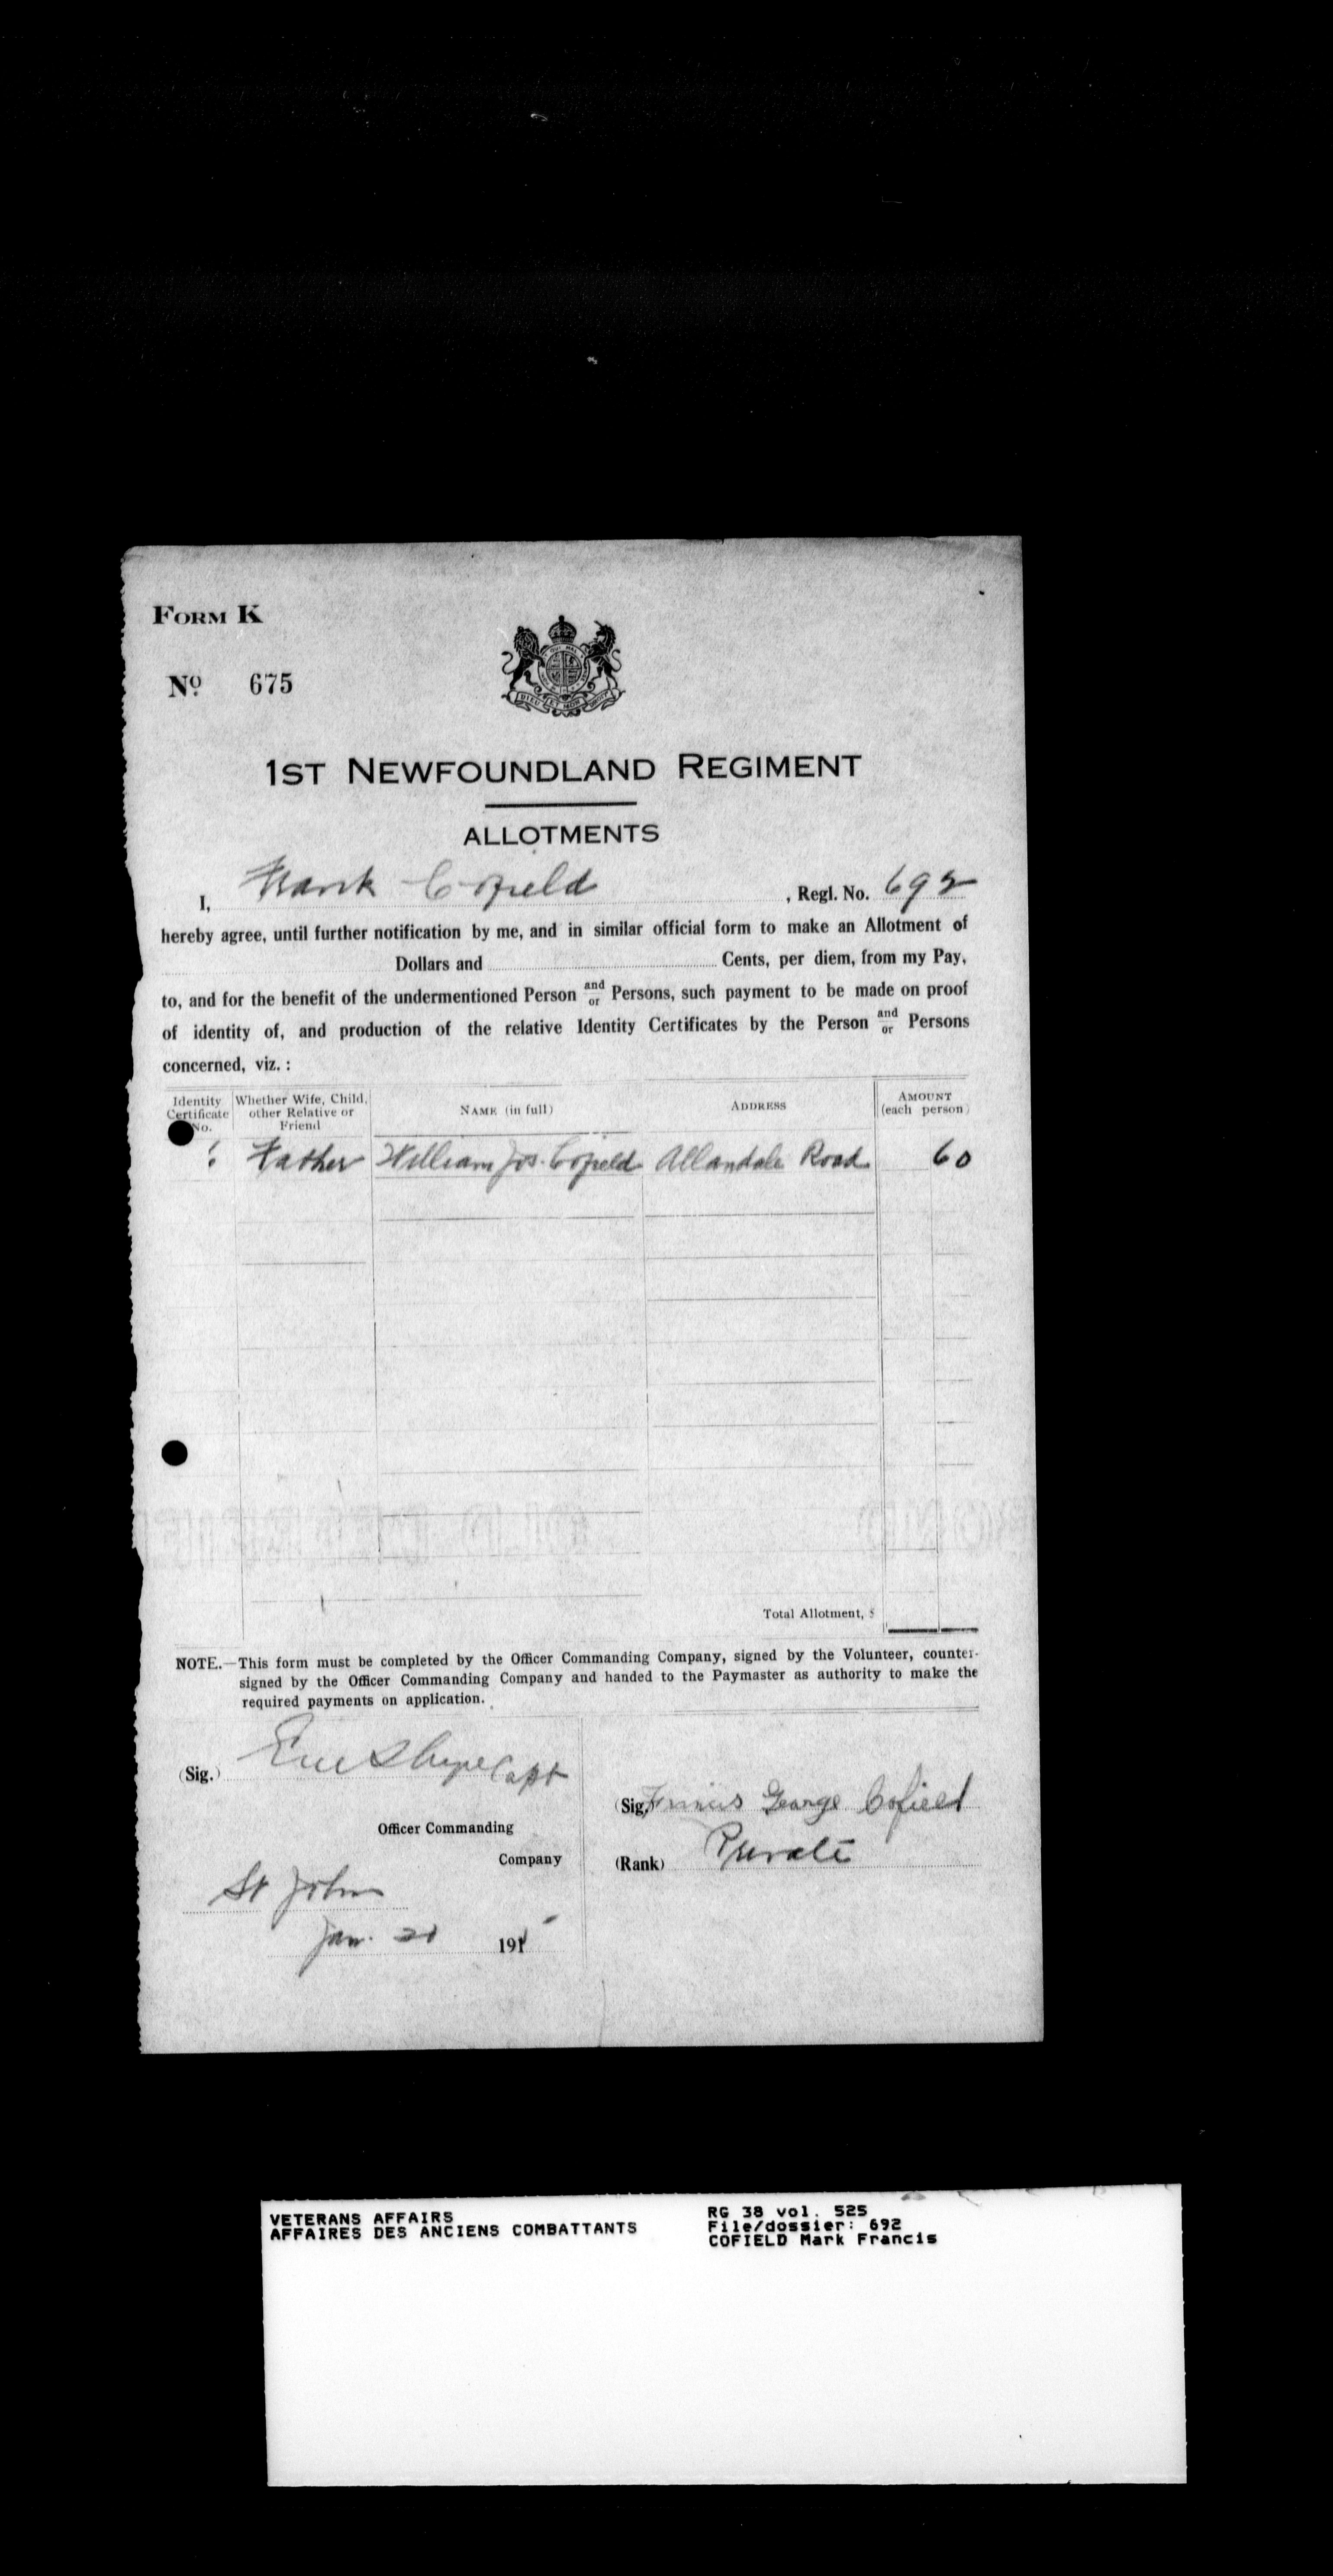 FORM K
No 675
1ST NEWFOUNDLAND REGIMENT
ALLOTMENTS
I, Frank Cofield, Regl. No. 692
hereby agree, until further notification by me, and in similar official form to make an Allotment of
Dollars and Cents, per diem, from my Pay,
to, and for the benefit of the undermentioned Person and/or Persons, such payment to be made on proof
of identity of, and production of the relative Identity Certificates by the Person and/or Persons
concerned, viz. :
Identity Certificate No. Whether Wife, Child, other Relative or Friend NAME (in full) ADDRESS AMOUNT (each person)
Father William Jos. Cofield Allandale Road 60
Total Allotment, $
NOTE.—This form must be completed by the Officer Commanding Company, signed by the Volunteer, counter-
signed by the Officer Commanding Company and handed to the Paymaster as authority to make the
required payments on application.
(Sig.) Capt
Officer Commanding
Company
St John
Jan. 1915
(Sig.) Francis George Cofield
(Rank) Private
VETERANS AFFAIRS
AFFAIRES DES ANCIENS COMBATTANTS
RG 38 vol. 525
File/dossier: 692
COFIELD Mark Francis